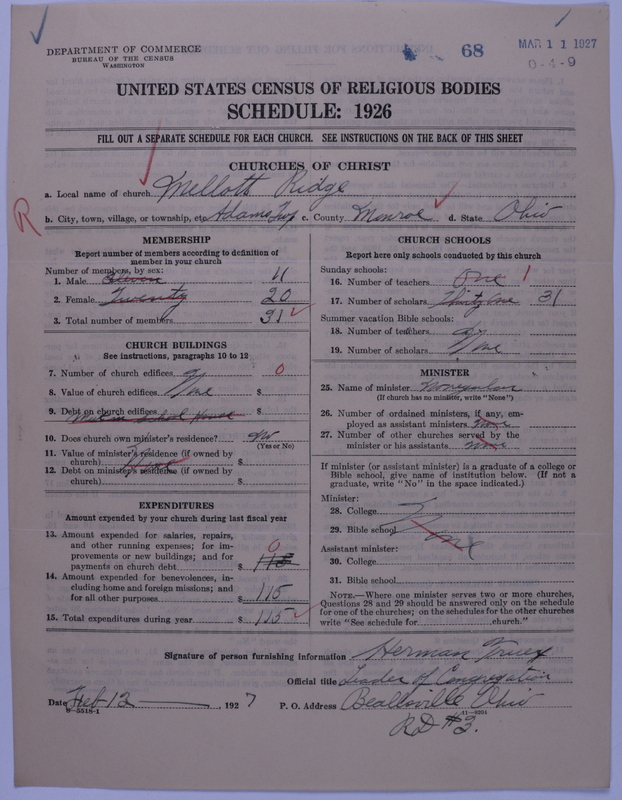 DEPARTMENT OF COMMERCE
BUREAU OF THE CENSUS
WASHINGTON
68
MAR 11 1927
0-4-9
UNITED STATES CENSUS OF RELIGIOUS BODIES
SCHEDULE: 1926
FILL OUT A SEPARATE SCHEDULE FOR EACH CHURCH. SEE INSTRUCTIONS ON THE BACK OF THIS SHEET
CHURCHES OF CHRIST
a. Local name of church Mellott Ridge
R
b. City, town, village, or township, etc. Adams Twp c. County Monroe d. State Ohio
MEMBERSHIP
Report number of members according to definition of
member in your church
Number of members, by sex:
1. Male Eleven 11
2. Female Twenty 20
3. Total number of members 31
CHURCH BUILDINGS
See instructions, paragraphs 10 to 12
7. Number of church edifices 0
8. Value of church edifices $
9. Debt on church edifices School House $
10. Does church own minister's residence? No
(Yes or No)
11. Value of minister's residence (if owned by
church) None $
12. Debt on minister's residence (if owned by
church) $
EXPENDITURES
Amount expended by your church during last fiscal year
13. Amount expended for salaries, repairs,
and other running expenses; for im-
provements or new buildings; and for
payments on church debt $ 0 115
14. Amount expended for benevolences, in-
cluding home and foreign missions; and
for all other purposes $ 115
15. Total expenditures during year $ 115
CHURCH SCHOOLS
Report here only schools conducted by this church
Sunday schools:
16. Number of teachers One 1
17. Number of scholars Thirty One 31
Summer vacation Bible schools:
18. Number of teachers
19. Number of scholars
MINISTER
25. Name of minister
(If church has no minister, write "None")
26. Number of ordained ministers, if any, em-
ployed as assistant ministers None
27. Number of other churches served by the
minister or his assistants None
If minister (or assistant minister) is a graduate of a college or
Bible school, give name of institution below. (If not a
graduate, write "No" in the space indicated.)
Minister:
28. College
29. Bible school None
Assistant minister:
30. College
31. Bible school
NOTE.—Where one minister serves two or more churches,
Questions 28 and 29 should be answered only on the schedule
for one of the churches; on the schedules for the other churches
write "See schedule for church."
Signature of person furnishing information Herman Truex
Official title Leader of Congregation
Date Feb 12, 1927 P. O. Address Beallsville Ohio
8-5518-1
11-9204
RD #3.